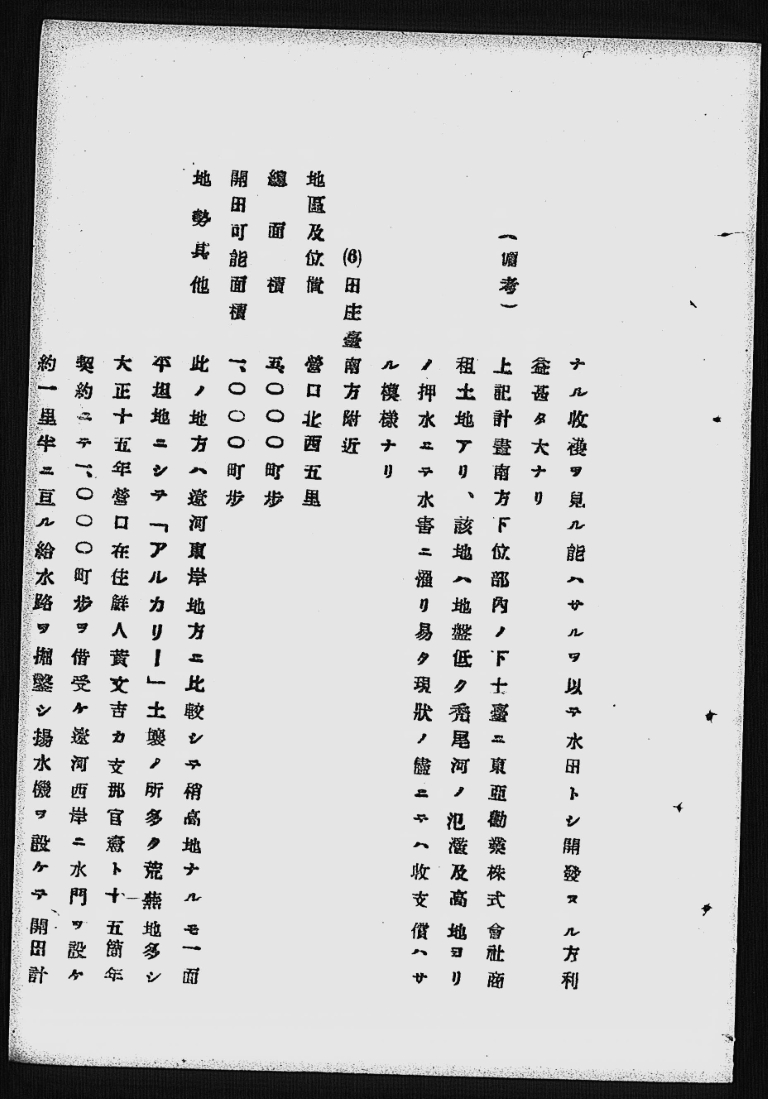 ナル收穫ヲ見ル能ハサルヲ以テ水田トシ開發スル方利
益甚タ大ナリ
(備考) 上記計畫南方下位部内ノ下土臺ニ東亞勸業株式會社商
租土地アリ、該地ハ地盤低ク禿尾河ノ氾濫及高地ヨリ
ノ押水ニテ水害ニ罹リ易タ現狀ノ儘ニテハ收支償ハサ
ル模様ナリ
(6)田庄臺南方附近
地區及位置 營口北西五里
總面積 五、〇〇〇町步
開田可能面積 一、〇〇〇町步
地勢其他 此ノ地方ハ遼河東岸地方ニ比較シテ稍高地ナルモ一面
平坦地ニシテ「アルカリー」土壤ノ所多ク荒蕪地多シ
大正十五年營口在住鮮人黃文吉カ支那官憲ト十五箇年
契約ニテ一、〇〇〇町步ヲ借受ケ遼河西岸ニ水門ヲ設ケ
約一里半ニ亘ル給水路ヲ掘鑿シ揚水機ヲ設ケテ開田計